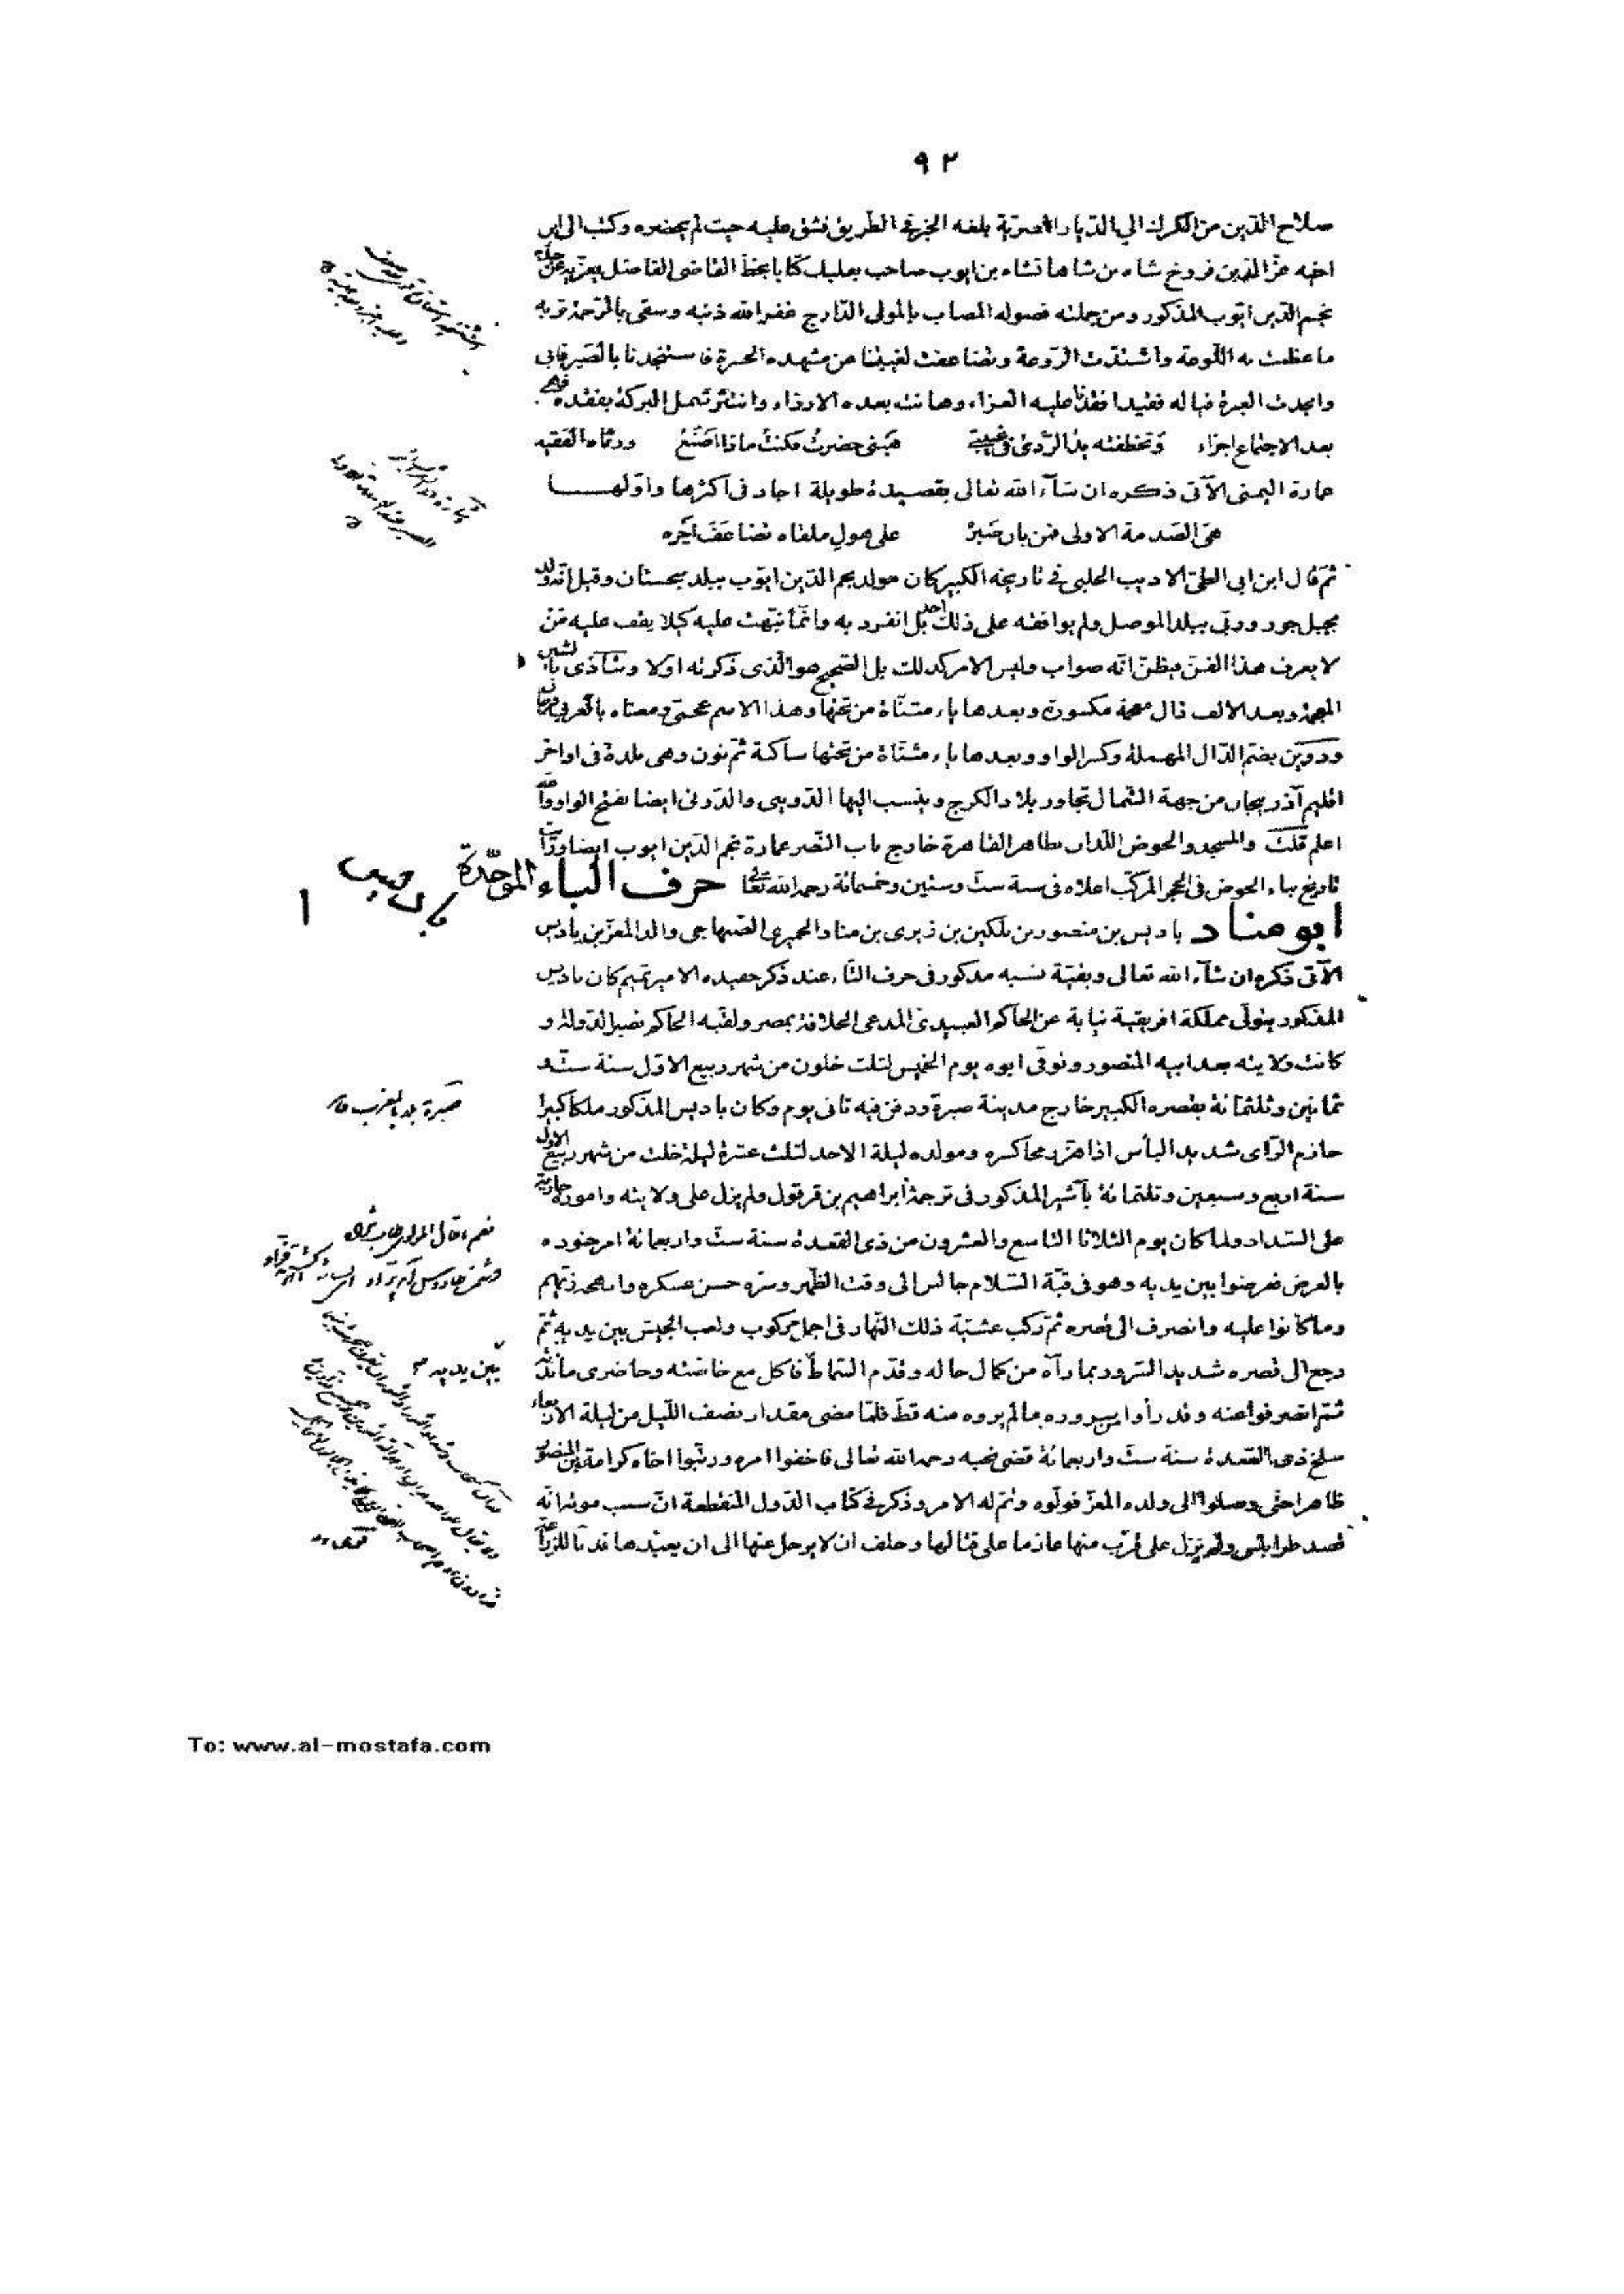 ٩٢
صلاح الدين من الكرك الي الديار المصرية بلغه الخبر في الطريق فشق عليه حيث لم يحضره وكتب الى ابن
اخيه عز الدين فروخ شاه بن شاهانشاه بن ايوب صاحب بعلبك كتابا بخط القاضى الفاضل يعزيه عن جده
نجم الدين ايوب المذكور ومن جملته فصوله المصاب بالمولى الدارج غفر الله ذنبه وسقى بالرحمة تربه
ما عظمت به اللوعة واشتدت الروعة وتضاعفت لغيبتنا عن مشهده الحسرة فاستنجدنا بالصبر فابى
وانجدت العبرة فياله فقيدا فقد عليه العزاء وهانت بعده الارزاء وانتثر شمل البركة بفقده فهى
بعد الاجتماع اجزاء وتخطفته يد الردى فى غيبتى هبنى حضرت فكنت ماذا اصنع ورثاه الفقيه
عمارة اليمنى الآتى ذكره ان شآء الله تعالى بقصيدة طويلة اجاد فى اكثرها واولهـــا
هى الصدمة الاولى فمن بان صبره على هول ملقاه تضاعف اجره
ثم قال ابن ابى الطى الاديب الحلبى فى تاريخه الكبير كان مولد نجم الدين ايوب ببلد سجستان وقيل انه ولد
بجبل جور وربى ببلد الموصل ولم يوافقه على ذلك احد بل انفرد به وانما نبهت عليه كيلا يقف عليه من
لا يعرف هذا الفن فيظن انه صواب وليس الامر كذلك بل الصحيح هو الذى ذكرته اولا وشاذى بالشين
المعجمة وبعد الالف ذال معجمة مكسورة وبعدها ياء مثناة من تحتها وهذا الاسم عجمى ومعناه بالعربى فرحان
ودوين بضم الدال المهملة وكسر الواو وبعدها ياء مثناة من تحتها ساكنة ثم نون وهى بلدة فى اواخر
اقليم آذربيجان من جهة الشمال تجاور بلاد الكرج وينسب اليها الدوينى والدونى ايضا بفتح الواو والله
اعلم قلت والمسجد والحوض اللذان بظاهر القاهرة خارج باب النصر عمارة نجم الدين ايوب ايضا ورأيت
تاريخ بناء الحوض فى الحجر المركب اعلاه فى سنة ست وستين وخمسمائة رحمه الله تعالى حرف الباء الموحدة
باديس
ابو مناد باديس بن منصور بن بلكين بن زيرى بن مناد الحميرى الصنهاجى والد المعز بن باديس
الآتى ذكره ان شآء الله تعالى وبقية نسبه مذكور فى حرف التاء عند ذكر حفيده الامير تميم كان باديس
المذكور يتولى مملكة افريقية نيابة عن الحاكم العبيدى المدعى الخلافة بمصر ولقبه الحاكم نصير الدولة و
كانت ولايته بعد ابيه المنصور وتوفى ابوه يوم الخميس لثلث خلون من شهر ربيع الاول سنة ست و
ثمانين وثلثمائة بقصره الكبير خارج مدينة صبرة ودفن فيه ثانى يوم وكان باديس المذكور ملكا كبيرا
حازم الراى شديد البأس اذا هز رمحا كسره ومولده ليلة الاحد لثلث عشرة ليلة خلت من شهر ربيع الاول
سنة اربع وسبعين وثلثمائة بآشير المذكور فى ترجمة ابراهيم بن قرقول ولم يزل على ولايته واموره جارية
على السداد ولما كان يوم الثلاثا التاسع والعشرون من ذى القعدة سنة ست واربعمائة امر جنوده
بالعرض فعرضوا بين يديه وهو فى قبة السلام جالس الى وقت الظهر وسره حسن عسكره وابهجه زيهم
وما كانوا عليه وانصرف الى قصره ثم ركب عشية ذلك النهار فى اجمل مركوب ولعب الجيش بين يديه ثم
رجع الى قصره شديد السرور بما رآه من كمال حاله وقدم السماط فاكل مع خاصته وحاضرى مائدته
ثم انصرفوا عنه وقد رأوا من سروره ما لم يروه منه قط فلما مضى مقدار نصف الليل من ليلة الاربعاء
سلخ ذى القعدة سنة ست واربعمائة قضى نحبه رحمه الله تعالى فاخفوا امره ورتبوا اخاه كرامة بن المنصور
ظاهرا حتى وصلوا الى ولده المعز فولوه وتم له الامر وذكر فى كتاب الدول المنقطعة ان سبب موته انه
قصد طرابلس ولم يزل على قرب منها عازما على قتالها وحلف ان لا يرحل عنها الى ان يعيدها فدنا للزراعة
صبرة بلد بالمغرب قا
بين يديه
To: www.al-mostafa.com